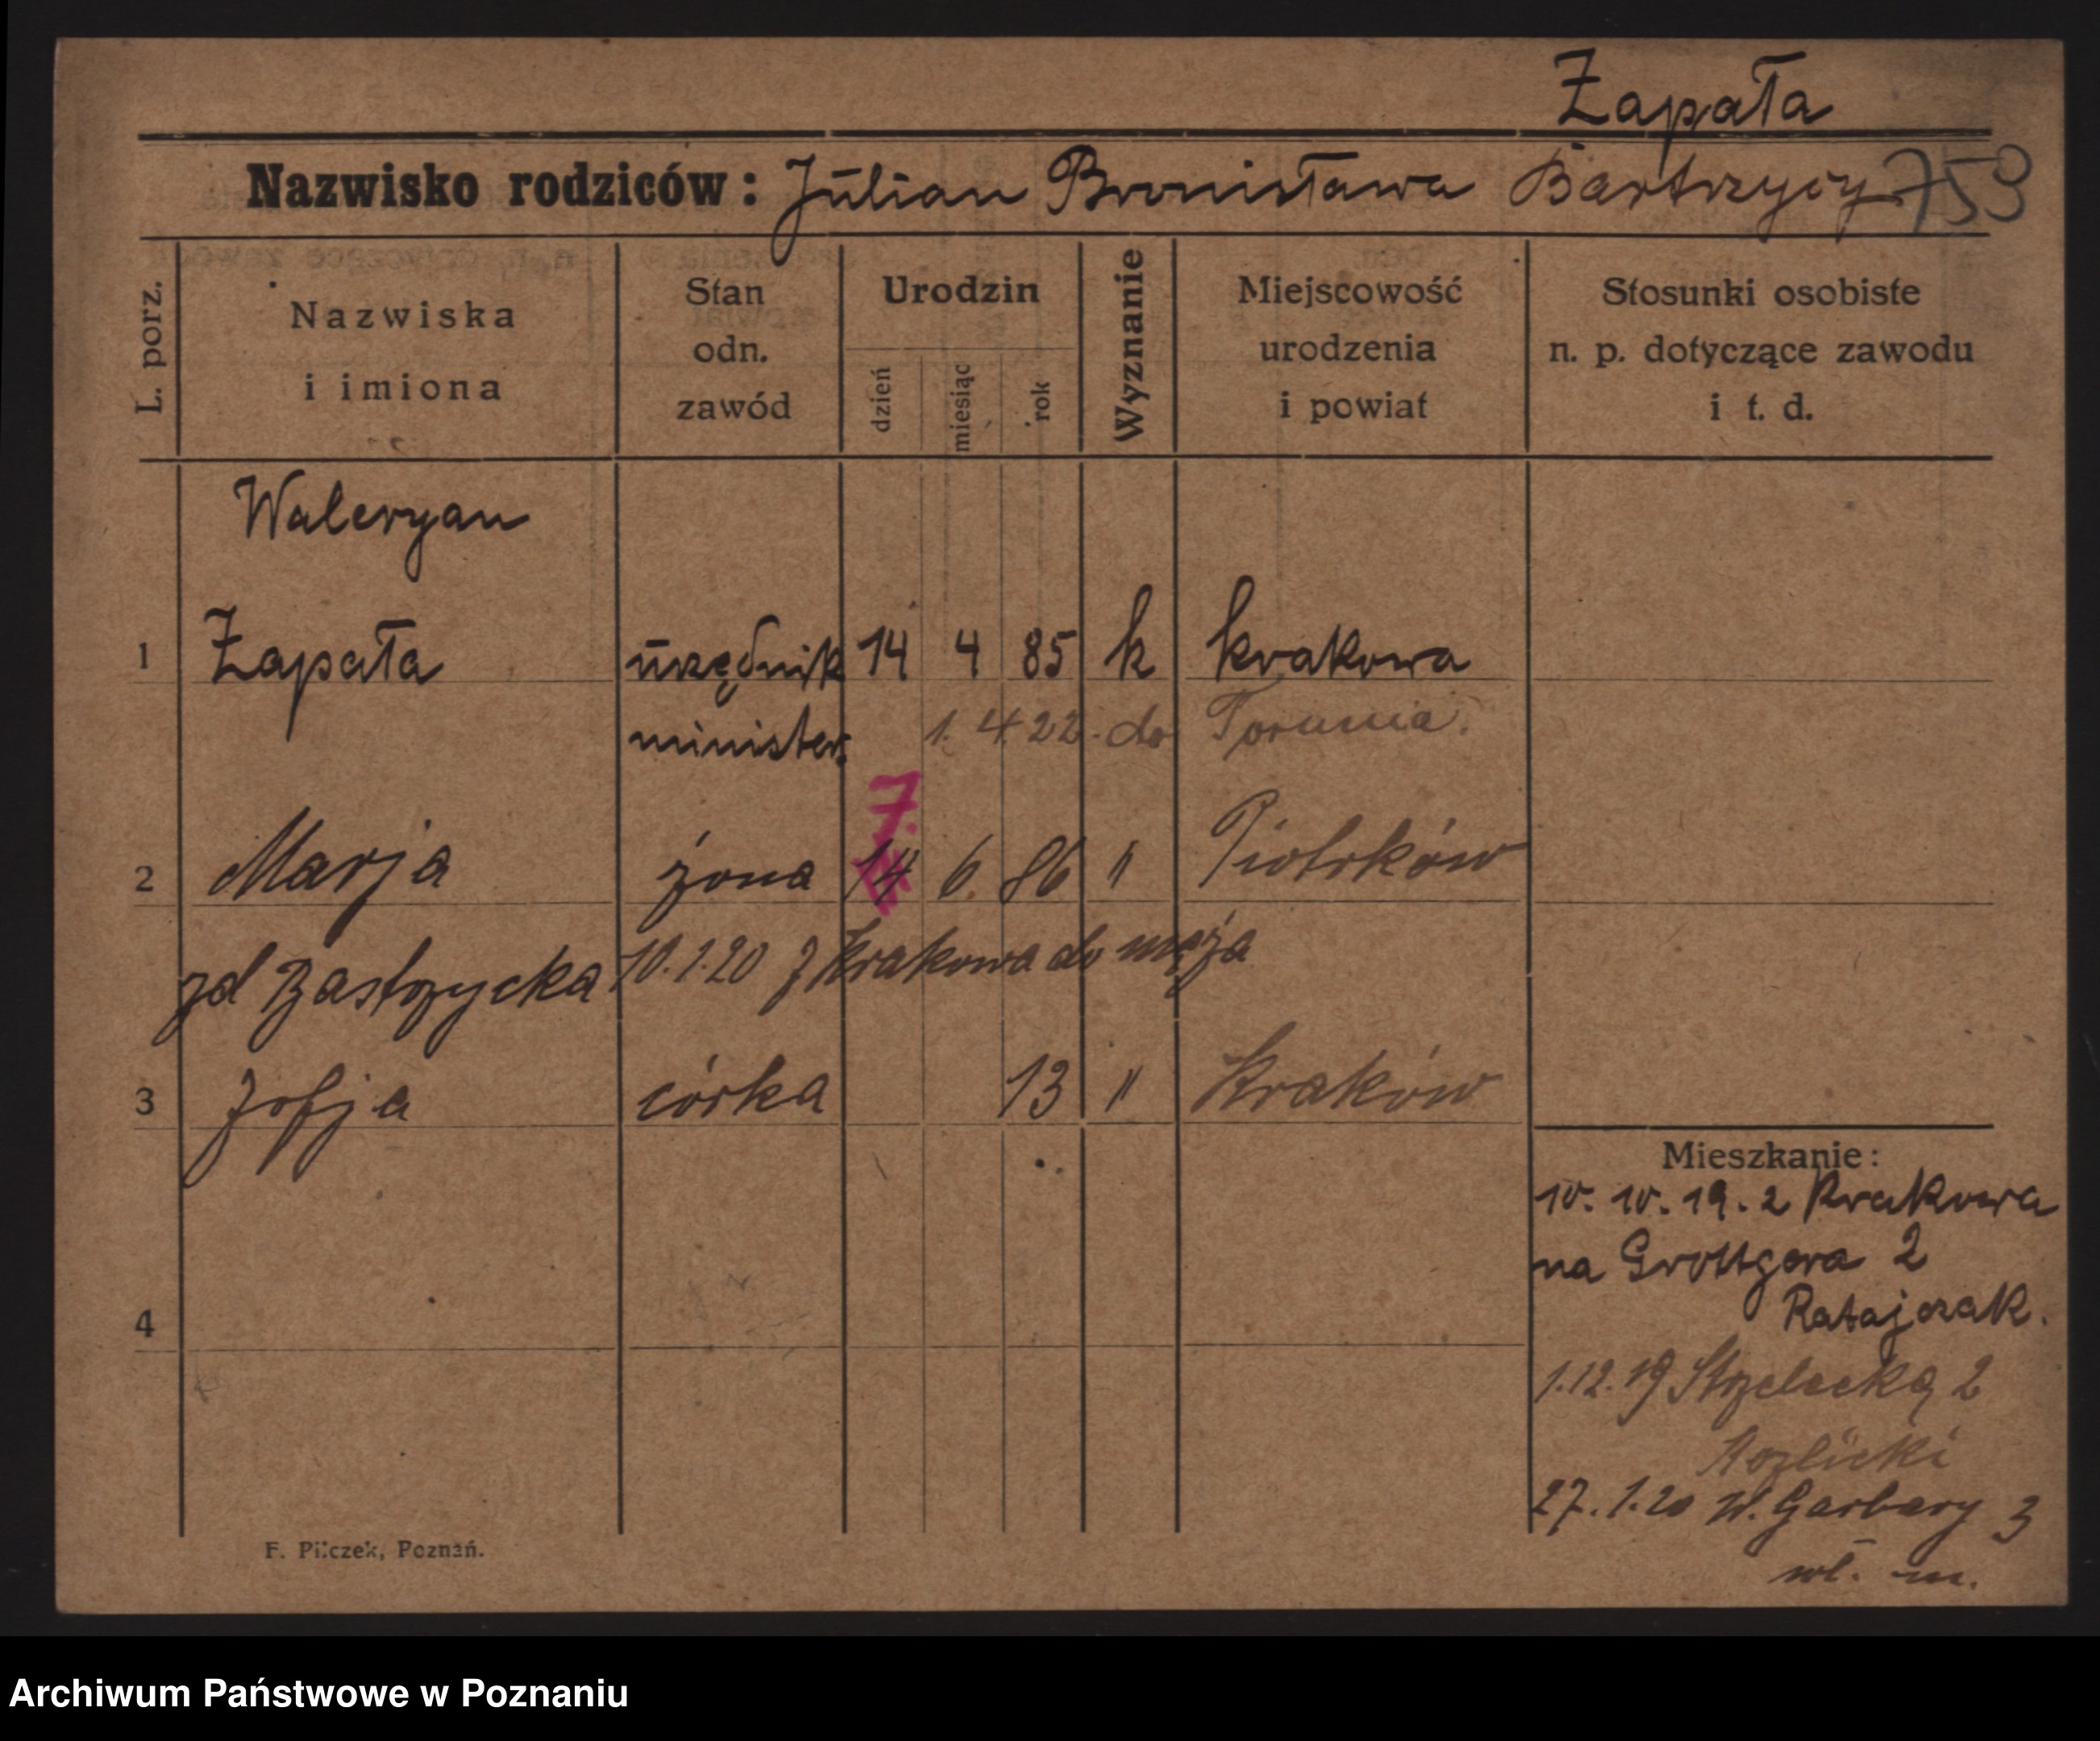 Zapała
Nazwisko rodziców: Julian Bronisława Bartrzycy 753
L. porz.
Nazwiska
i imiona
Stan
odn.
zawód
Urodzin
dzień
miesiąc
rok
Wyznanie
Miejscowość
urodzenia
i powiat
Stosunki osobiste
n. p. dotyczące zawodu
i t. d.
Waleryan
1 Zapała urzędnik 14 4 85 k krakowa
minister. 1. 4 22. do Torunia.
7.
2 Marja żona 14 6 86 " Piotrków
zd Bastrzycka 10.1.20 z Krakowa do męża
3 Zofja córka 13 " Kraków
Mieszkanie:
10. 10. 19. z Krakowa
na Grottgera 2
Ratajczak.
4
1.12.19 Strzelecką 2
27.1.20 W. Garbary 3
wł. m.
F. Pilczek, Poznań.
Archiwum Państwowe w Poznaniu